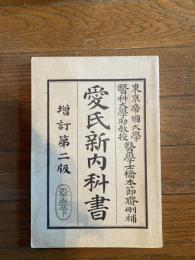 東京帝國大學
醫科大學助敎授醫學士橋本節齋刪補
愛氏新内科書
增訂第二版